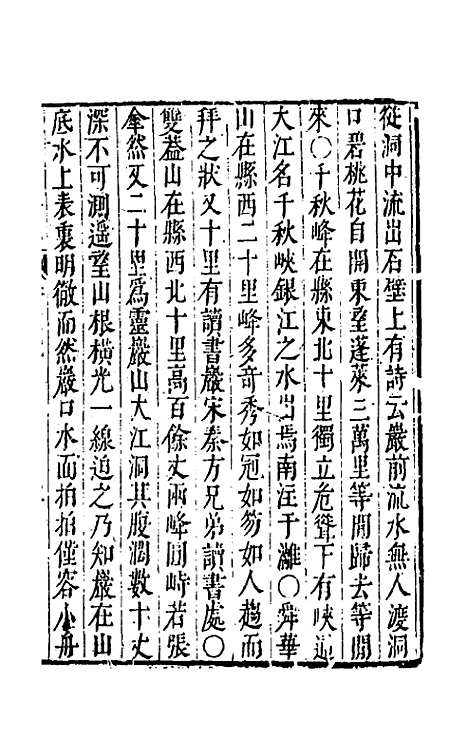 從洞中流出石壁上有詩云巖前流水無人渡洞
口碧桃花自開東望蓬萊三萬里等閒歸去等閒
來〇千秋峰在縣東北十里獨立危聳下有峽逼
大江名千秋峽銀江之水出焉南注于灕〇舜華
山在縣西二十里峰多奇秀如冠如笏如人趨而
拜之狀又十里有讀書巖宋秦方兄弟讀書處〇
雙葢山在縣西北十里高百餘丈兩峰圓峙若張
傘然又二十里爲靈巖山大江洞其腹濶數十丈
深不可測遥望山根橫光一線迫之乃知巖在山
底水上表裏明徹而然巖口水面拍拍僅容小舟